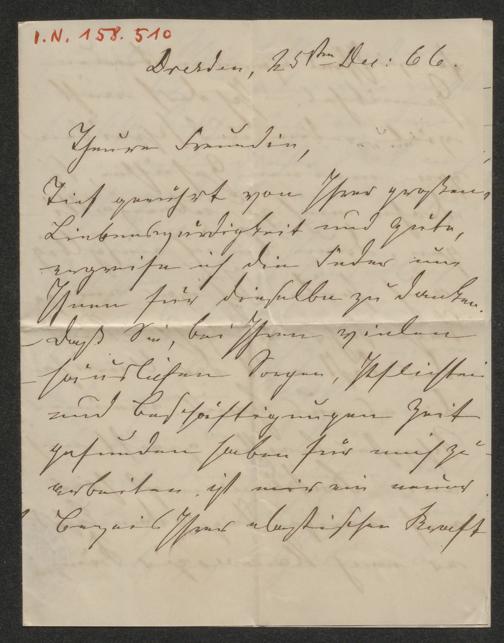 I.N. 158.510
Dresden, 25ten Dec: 66.
Theure Freundin,
Tief gerührt von Ihrer großen
Liebenswürdigkeit und Güte,
ergreife ich die Feder um
Ihnen für dieselbe zu danken.
Daß Sie, bei Ihren vielen
häuslichen Sorgen, Pflichten
und Beschäftigungen Zeit
gefunden haben für mich zu
arbeiten, ist mir ein neuer
Beweis Ihrer elastischen Kraft